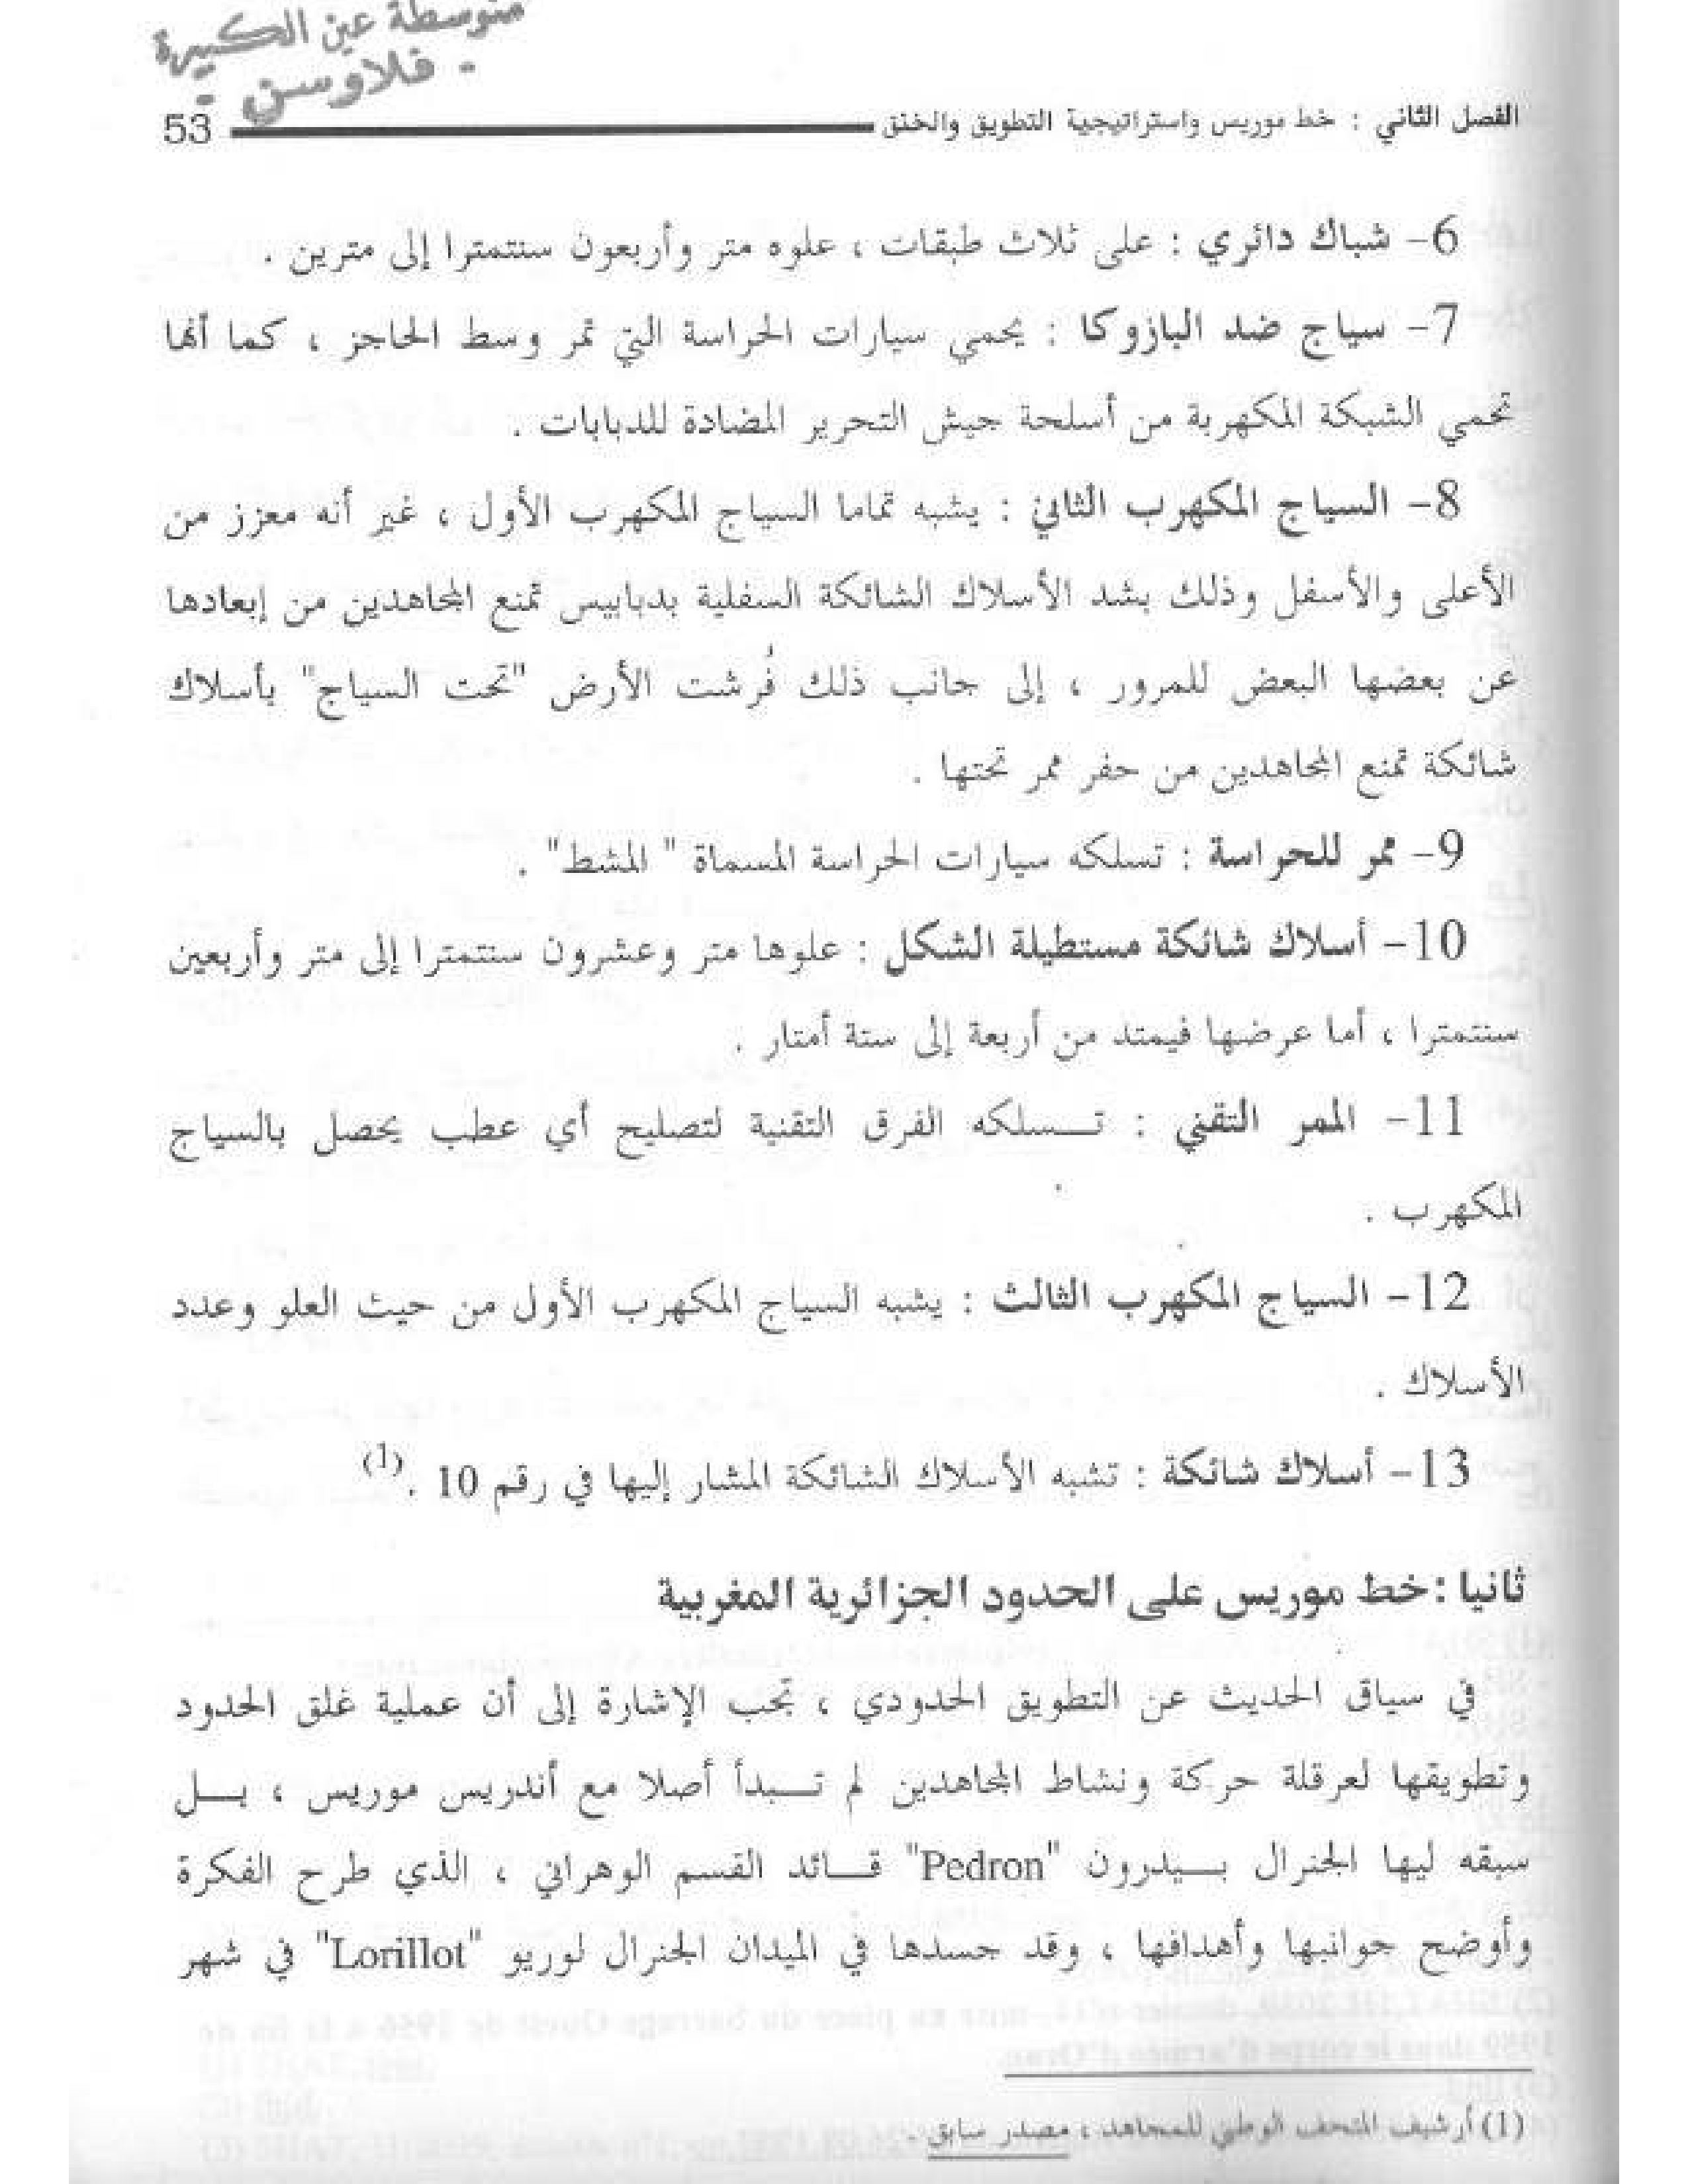 متوسطة عين الكبيرة
فلاوسن
الفصل الثاني : خط موريس واستراتيجية التطويق والخنق 53
6- شباك دائري : على ثلاث طبقات ، علوه متر وأربعون سنتمترا إلى مترين .
7- سياج ضد البازوكا : يحمي سيارات الحراسة التي تمر وسط الحاجز ، كما أنها
تحمي الشبكة المكهربة من أسلحة جيش التحرير المضادة للدبابات .
8- السياج المكهرب الثاني : يشبه تماما السياج المكهرب الأول ، غير أنه معزز من
الأعلى والأسفل وذلك بشد الأسلاك الشائكة السفلية بدبابيس تمنع المجاهدين من إبعادها
عن بعضها البعض للمرور ، إلى جانب ذلك فُرشت الأرض "تحت السياج" بأسلاك
شائكة تمنع المجاهدين من حفر ممر تحتها .
9- ممر للحراسة : تسلكه سيارات الحراسة المسماة " المشط" .
10- أسلاك شائكة مستطيلة الشكل : علوها متر وعشرون سنتمترا إلى متر وأربعين
سنتمترا ، أما عرضها فيمتد من أربعة إلى ستة أمتار .
11- الممر التقني : تـــسلكه الفرق التقنية لتصليح أي عطب يحصل بالسياج
المكهرب .
12- السياج المكهرب الثالث : يشبه السياج المكهرب الأول من حيث العلو وعدد
الأسلاك .
13- أسلاك شائكة : تشبه الأسلاك الشائكة المشار إليها في رقم 10 .(1)
ثانيا : خط موريس على الحدود الجزائرية المغربية
في سياق الحديث عن التطويق الحدودي ، تجب الإشارة إلى أن عملية غلق الحدود
وتطويقها لعرقلة حركة ونشاط المجاهدين لم تـــبدأ أصلا مع أندريس موريس ، بـــل
سبقه ليها الجنرال بـــيدرون "Pedron" قـــائد القسم الوهراني ، الذي طرح الفكرة
وأوضح جوانبها وأهدافها ، وقد جسدها في الميدان الجنرال لوريو "Lorillot" في شهر
(1) أرشيف المتحف الوطني للمجاهد ، مصدر سابق .